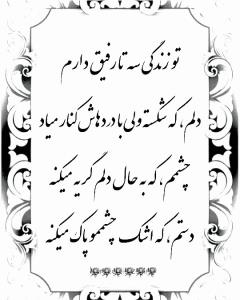 تو زندگی سه تا رفیق دارم
دلم ، که شکسته ولی با دردهاش کنار میاد
چشمم ، که به حال دلم گریه میکنه
دستم ، که اشک چشممو پاک میکنه